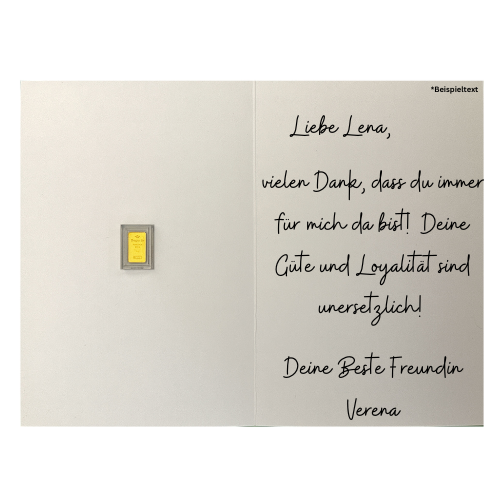 *Beispieltext
Liebe Lena,
vielen Dank, dass du immer
für mich da bist! Deine
Güte und Loyalität sind
unersetzlich!
Deine Beste Freundin
Verena